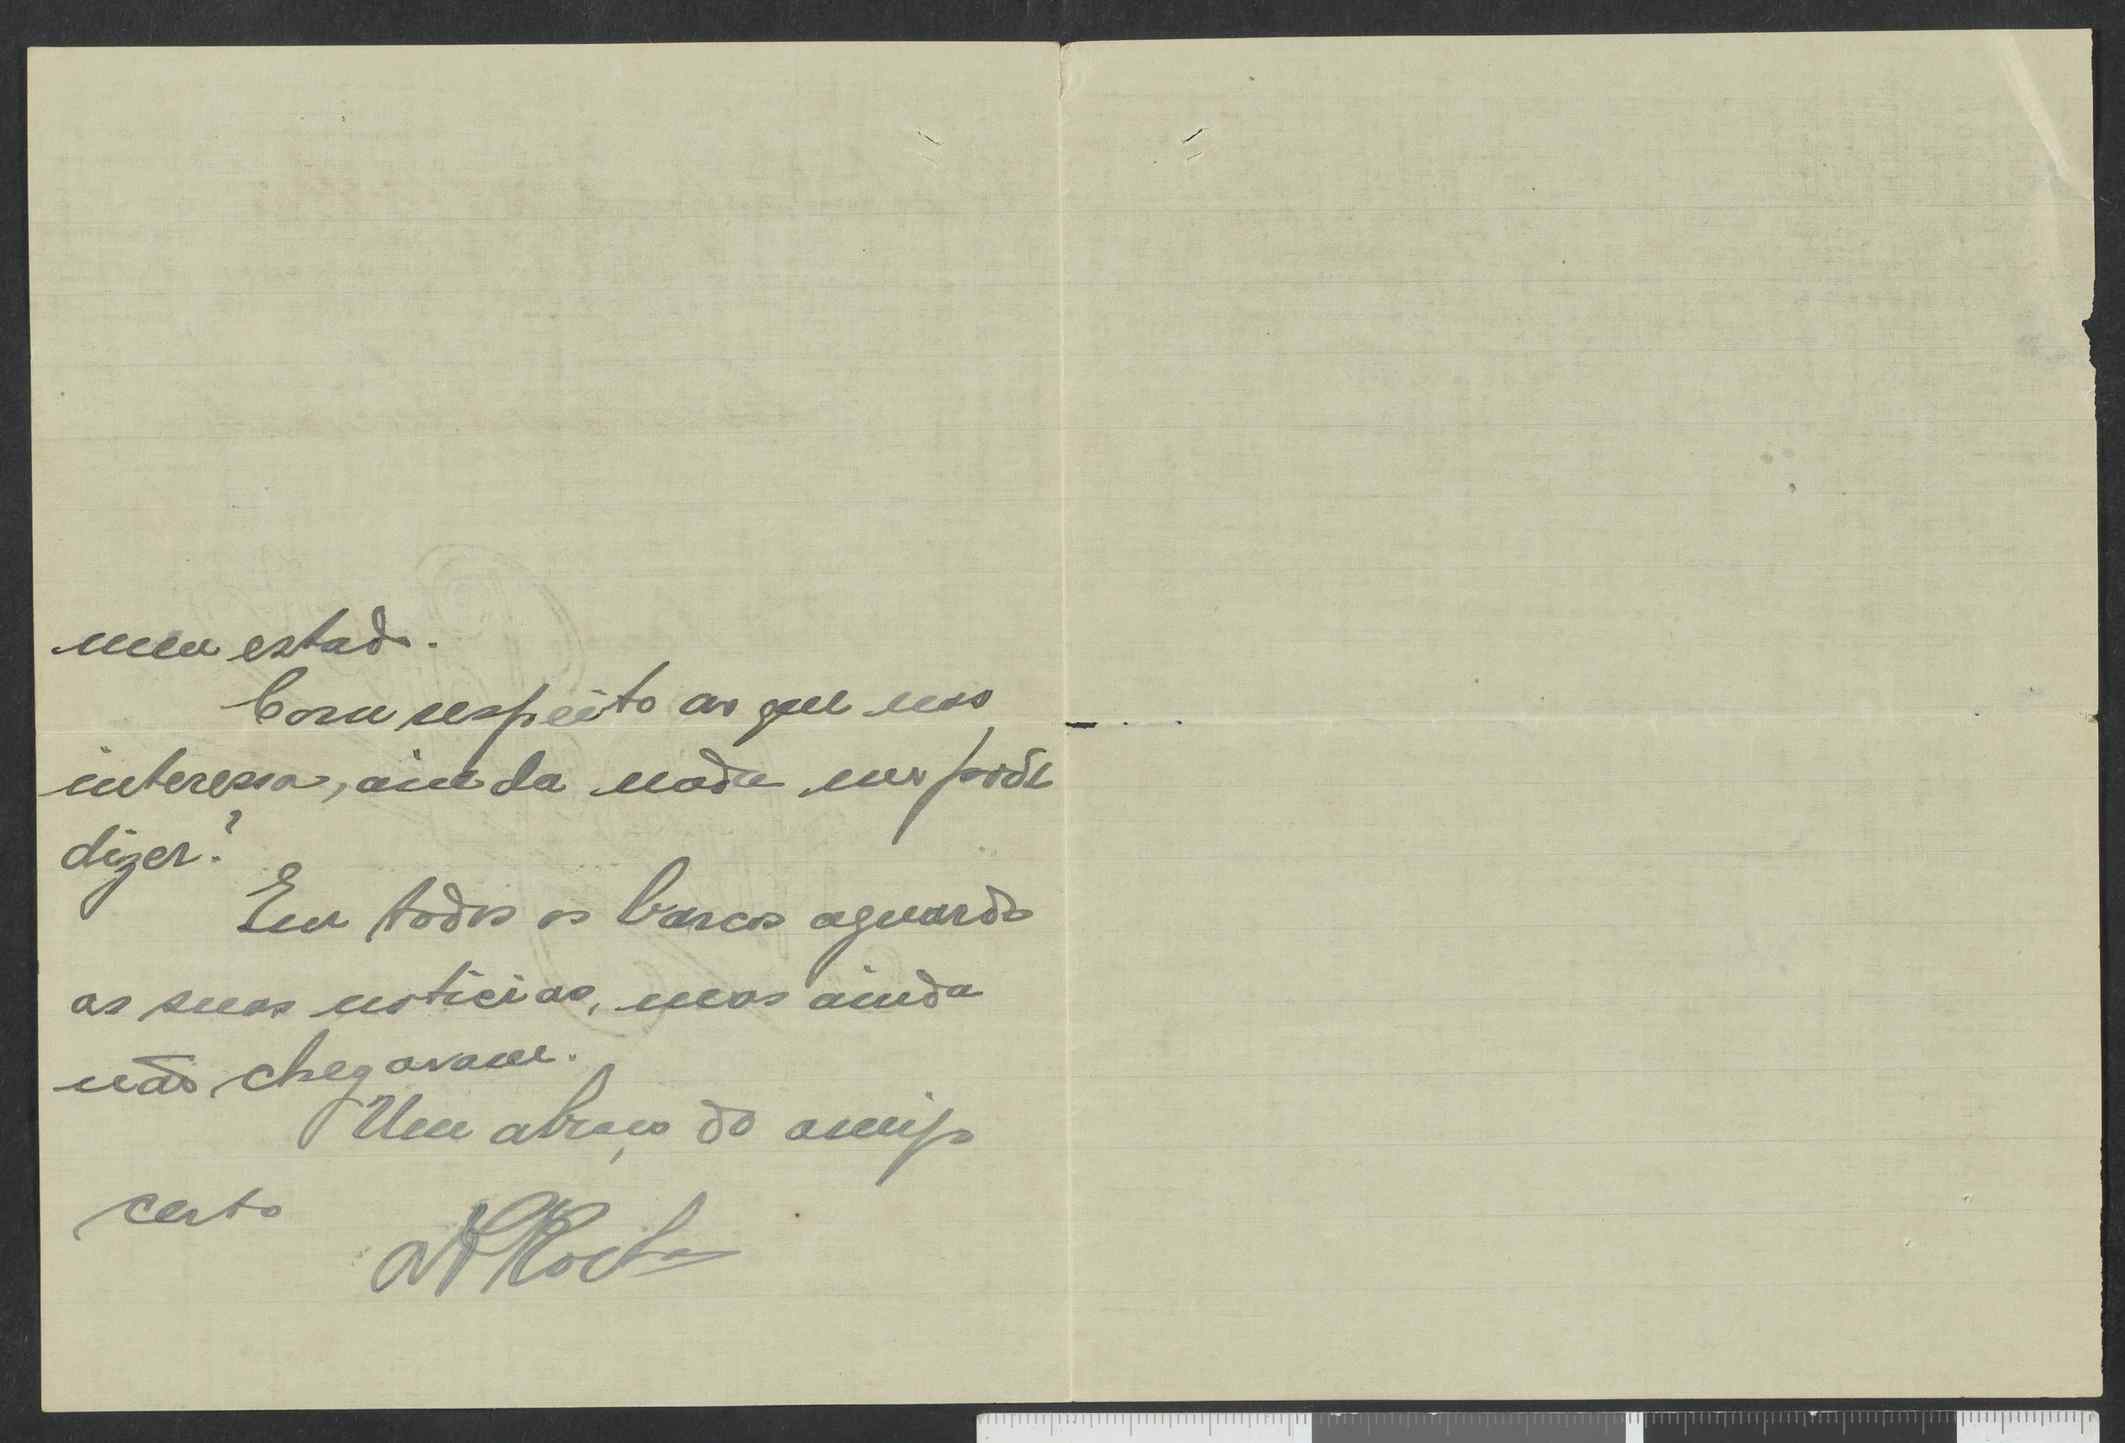 meu estado.
Com respeito ao que nos
interessa, ainda nada nos pode
dizer?
Em todos os barcos aguardo
as suas noticias, mas ainda
não chegaram.
Um abraço do amigo
certo
Rocha